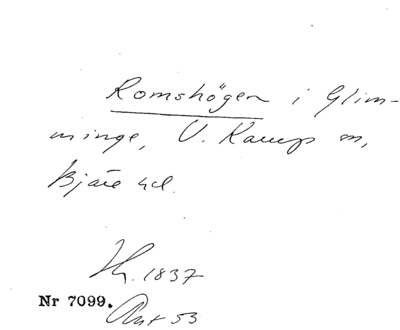 Romshögen i Glim-
minge, V. Karup sn,
Bjäre hd.
Th. 1837
Nr 7099. Ant 53